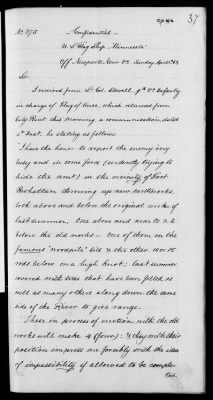 37
No. 375
Confidential
U.S. Flag Ship Minnesota
Off Newport News Va Sunday April 63
Sir
I received from Lt. Col. Stevell 9th Vt Infantry
in charge of Flag of truce, which returned from
City Point this morning a communication, dated
inst. he stating as follows
"I have the honor to report the enemy very
busy and in some force (evidently trying to
hide the amt.) in the vicinity of Fort
Powhattan throwing up new earthworks,
both above and below the original works of
last summer. One above and near to & 2
below the old works — One of them in the
famous "woodpile" site & the other 10 or 15
rods below on a high knoll; last summer
covered with trees that have been felled as
well as many others along down the same
side of the River to give range.
These in process of erection with the old
works will make 4 (four): & they with their
position impress me forcibly with the idea
of impossibility if allowed to be comple-
ted.